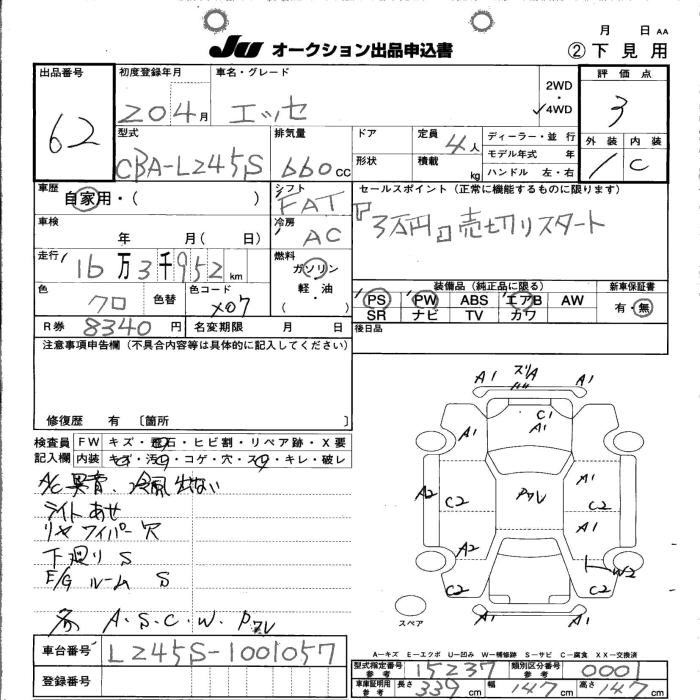 月 日 AA
JU オークション出品申込書 ②下見用
出品番号 初度登録年月 車名・グレード 評価点
62 204月 エッセ 2WD・✓4WD 3
型式 排気量 ドア 定員 4人 ディーラー・並行 外装 内装
CBA-L245S 660CC 形状 積載 kg モデル年式 年 1 C
ハンドル 左・右
車歴 自家用・( ) シフト FAT セールスポイント(正常に機能するものに限ります)
車検 年 月( 日) 冷房 AC 3万円 売切リスタート
走行 16万3千952km 燃料 ガソリン
軽・油
( )
色 クロ 色替 色コード X07 装備品(純正品に限る) 新車保証書
PS PW ABS エアB AW 有・無
SR ナビ TV カワ
R券 8340円 名変期限 月 日 後日品
注意事項申告欄(不具合内容等は具体的に記入してください)
修復歴 有 〔箇所 〕
検査員 FW キズ・飛石・ヒビ割・リペア跡・X要
記入欄 内装 キズ・汚・コゲ・穴・スレ・キレ・破レ
A/C 異音、冷風出ない
ライトあせ
リヤワイパー欠
下廻り S
E/Gルーム S
各 A.S.C.W.Pクレ
A1 スリA A1
A1 C1 A1
A1
A2 C2 Pクレ C2
A1
A2 W2
C2 C2
A1 A1
スペア
車台番号 L245S-1001057
A-キズ E-エクボ U-凹み W-補修跡 S-サビ C-腐食 XX-交換済
型式指定番号 参考 15237 類別区分番号 参考 0001
登録番号 車庫証明用 参考 長さ 339cm 幅 147cm 高さ 147cm